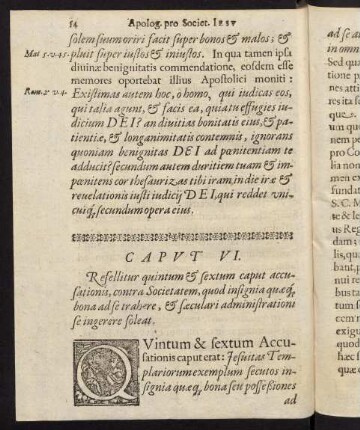 54 Apolog. pro Societ. IESV
solem suum oriri facit super bonos & malos; &
Mat 5. v. 45. pluit super iustos & iniustos. In qua tamen ipsa
diuinæ benignitatis commendatione, eosdem esse
memores oportebat illius Apostolici moniti:
Rom. 2. v. 4. Existimas autem hoc, o homo, qui iudicas eos,
qui talia agunt, & facis ea, quia tu effugies iu-
dicium DEI? an diuitias bonitatis eius, & pa-
tientiæ, & longanimitatis contemnis, ignorans
quoniam benignitas DEI ad pœnitentiam te
adducit? secundum autem duritiem tuam & im-
pœnitens cor thesaurizas tibi iram, in die iræ &
reuelationis iusti iudicij DEI, qui reddet vni-
cuiq, secundum opera eius.
CAPVT VI.
Refellitur quintum & sextum caput accu-
sationis, contra Societatem, quod insignia quæq,
bona ad se trahere, & sæculari administrationi
se ingerere soleat.
QVintum & sextum Accu-
sationis caput erat: Jesuitas Tem-
plariorum exemplum secutos in-
signia quæq, bona seu possessiones
ad